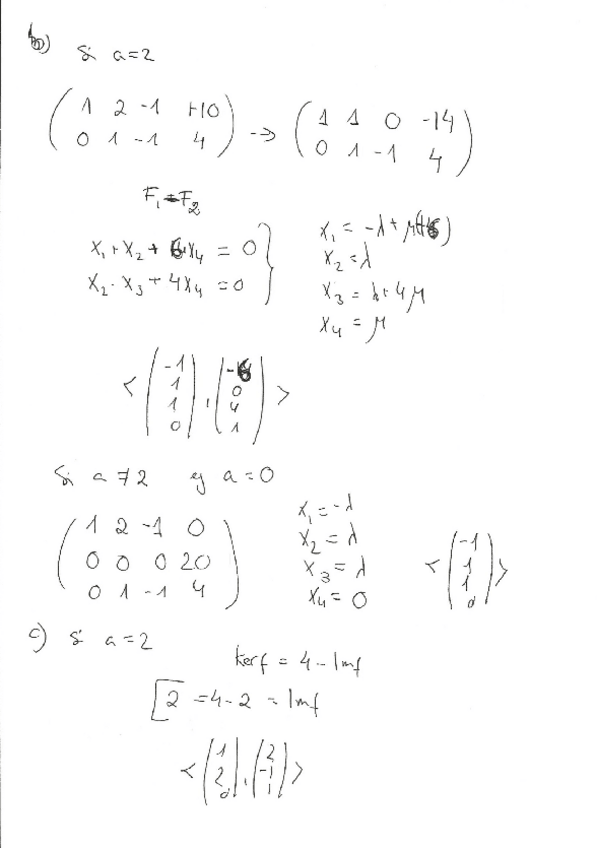 b) Si a=2
( 1 2 -1 +10 ; 0 1 -1 4 ) -> ( 1 1 0 -14 ; 0 1 -1 4 )
F₁-F₂
x₁+x₂+6x₄ = 0
x₂-x₃+4x₄ = 0
x₁ = -λ+μ(-6)
x₂ = λ
x₃ = λ+4μ
x₄ = μ
< ( -1 1 1 0 ) , ( -6 0 4 1 ) >
Si a≠2 ej a=0
( 1 2 -1 0 ; 0 0 0 20 ; 0 1 -1 4 )
x₁ = -λ
x₂ = λ
x₃ = λ
x₄ = 0
< ( -1 1 1 0 ) >
c) Si a=2
Ker f = 4 - Im f
2 = 4-2 = Im f
< ( 1 2 0 ) , ( 2 -1 1 ) >